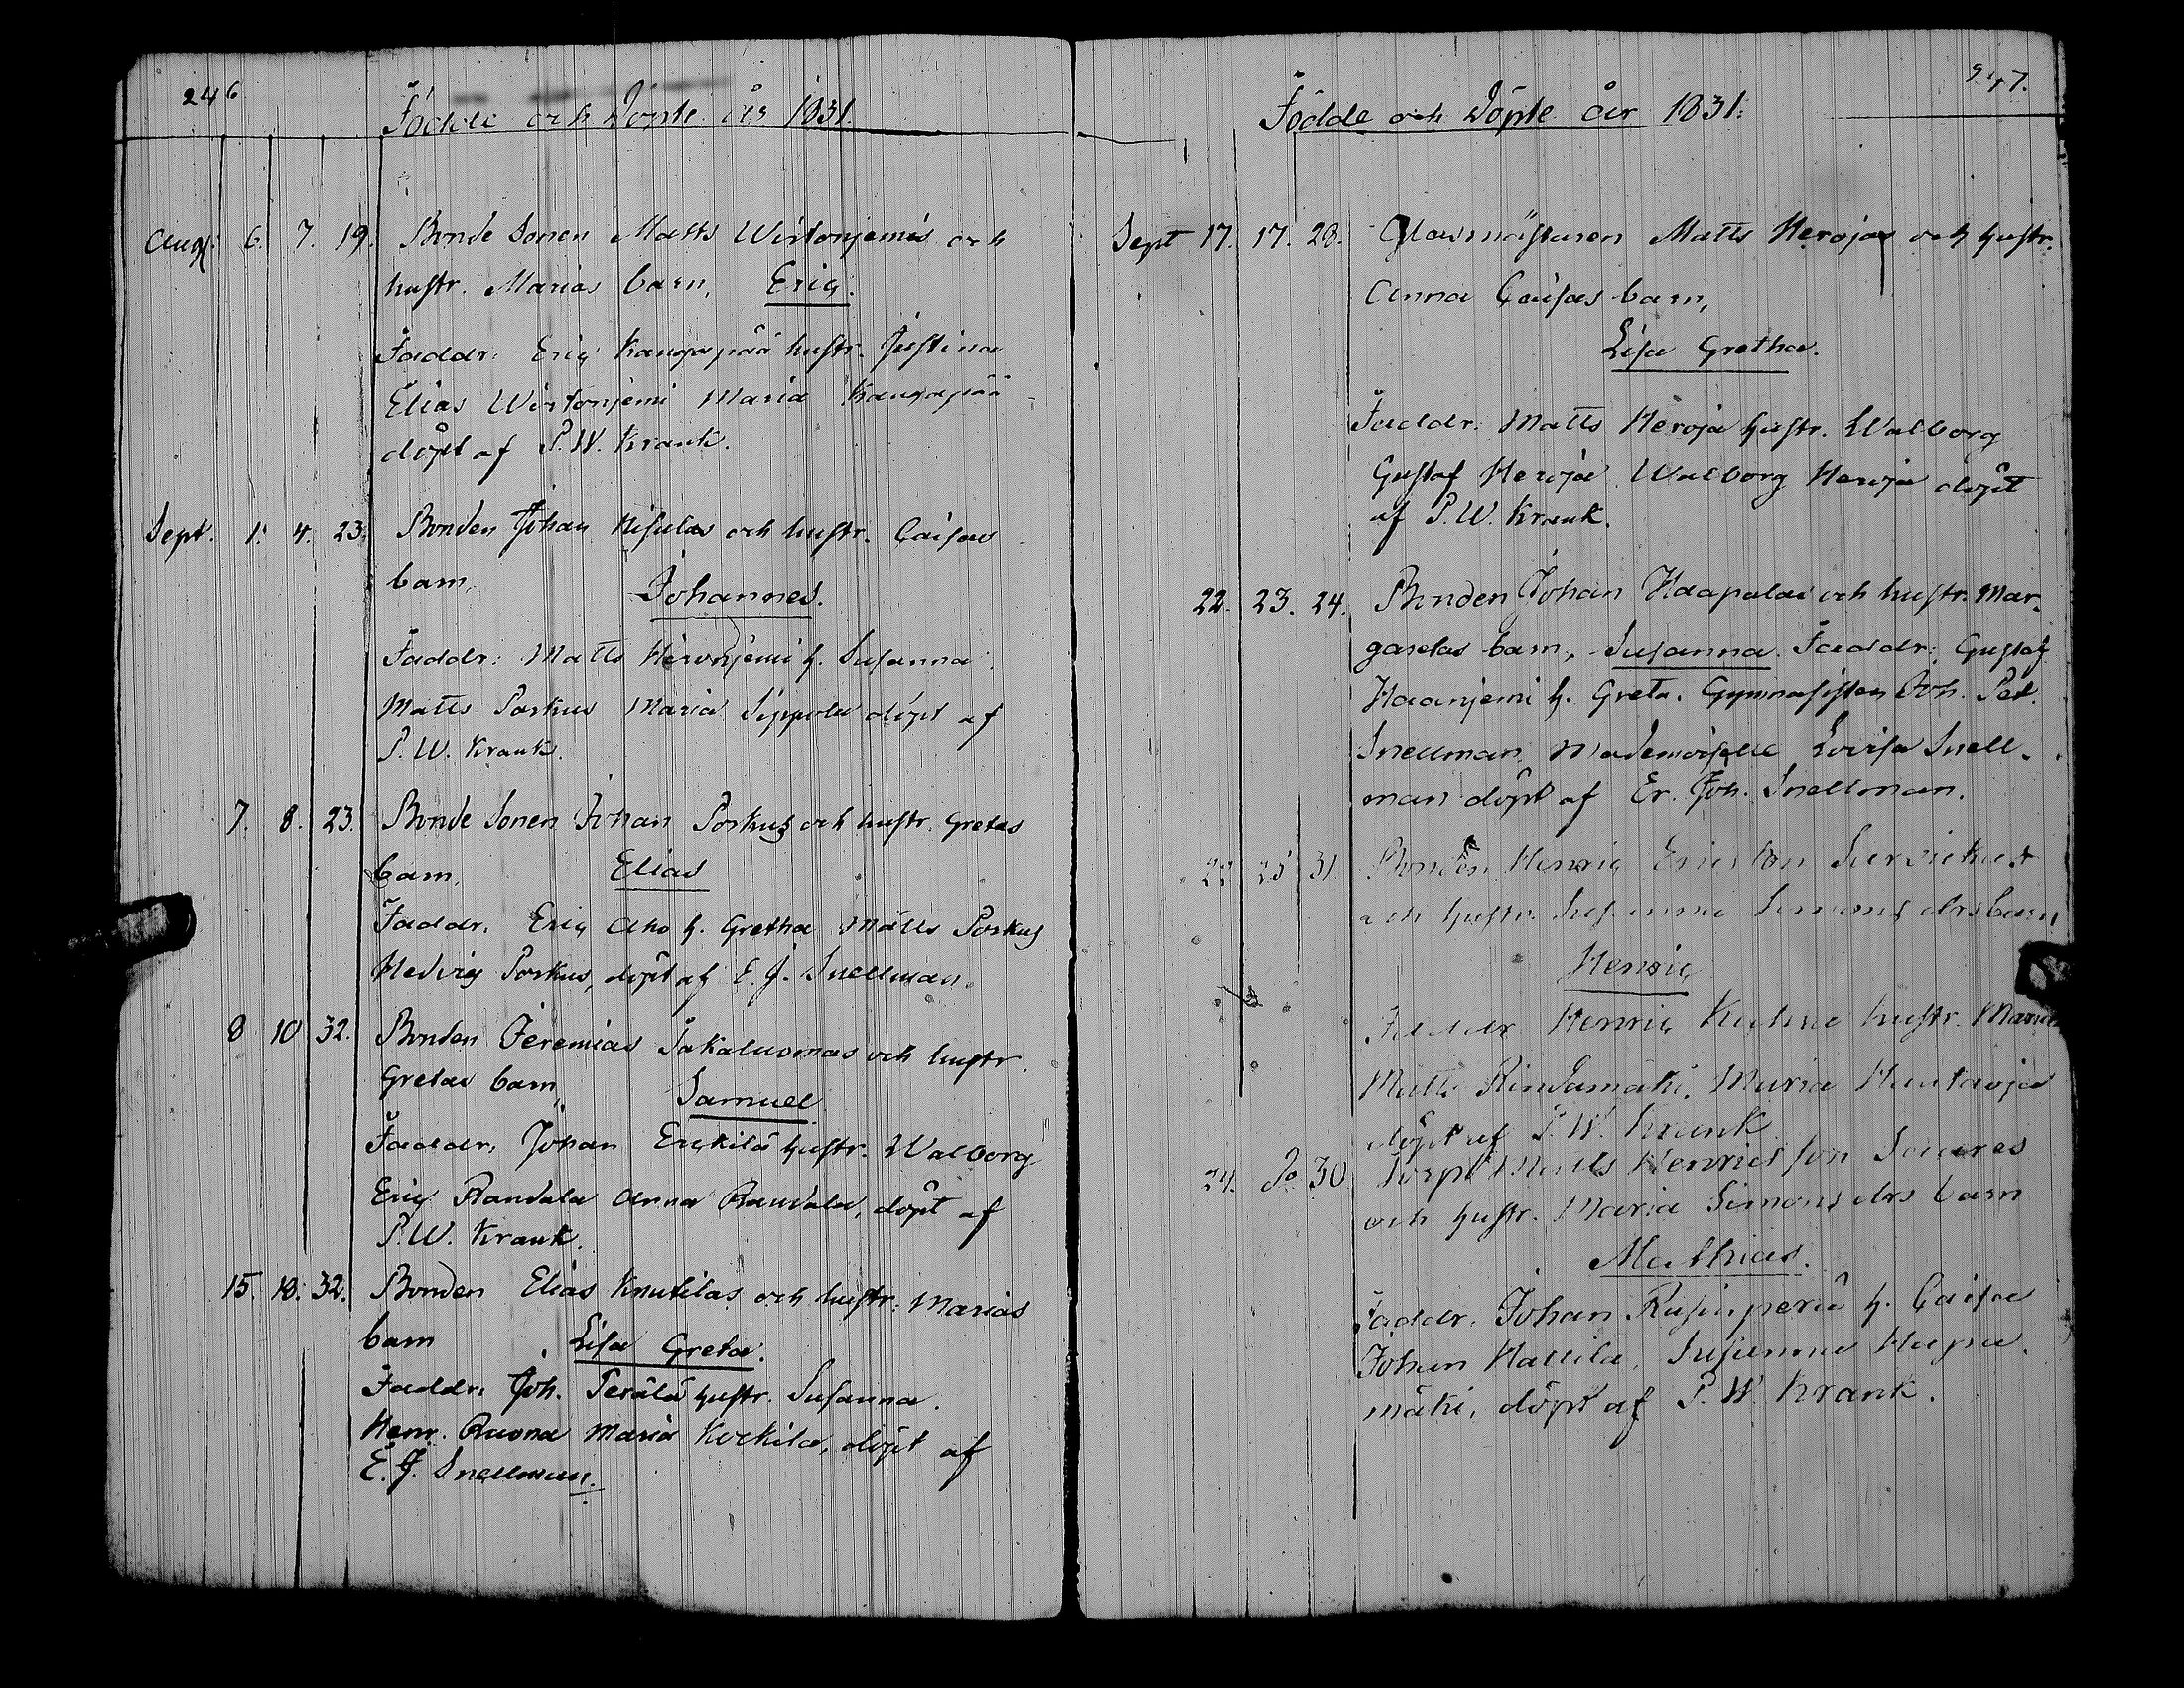 246
Födde och Döpte år 1831.
Aug: 6. 7. 19. Bonde Sonen Matts Wirtonjemis och
hustr. Marias barn, Eric.
Faddr: Eric Kangapää hustr. Justina
Elias Wirtonjemi Maria Kangapää
döpt af P.W. Krank.
Sept. 1. 4. 23. Bonden Johan Nisulas och hustr. Caisas
barn, Johannes.
Faddr: Matts Hirvonjemi h. Susanna
Matts Porkus Maria Sippola döpt af
P.W. Krank.
7. 8. 23. Bonde Sonen Johan Porkus och hustr. Gretas
barn, Elias
Faddr. Eric Aho h. Gretha Matts Porkus
Hedvig Porkus, döpt af E.J. Snellman.
8 10 32. Bonden Jeremias Jakaluomas och hustr.
Gretas barn, Samuel
Faddr. Johan Erckilä hustr. Walborg
Eric Randala Anna Randala, döpt af
P.W. Krank.
15. 18. 32. Bonden Elias Knutilas och hustr. Marias
barn Lisa Greta.
Faddr. Joh. Perälä hustr. Susanna.
Henr. Ruona Maria Kockila, döpt af
E.J. Snellman.
247.
Födde och Döpte år 1831.
Sept 17. 17. 28. Glasmästaren Matts Herojas och hustr.
Anna Caisas barn,
Lisa Gretha.
Faddr. Matts Heroja hustr. Walborg
Gustaf Heroja Walborg Heroja döpt
af P.W. Krank.
22. 23. 24. Bonden Johan Haapalas och hustr. Mar-
garetas barn, Susanna Faddr: Gustaf
Haanjemi h. Greta. Gymnasisten Joh. Ped.
Snellman Mademoiselle Lovisa Snell-
man döpt af Er. Joh. Snellman.
22 25 31 Bonden Henric Ericson
och hustr. Susanna Simons drs barn
Henric
Faddr Henric hustr. Maria
Matts Rindamäki, Maria Hautaoja
döpt af P.W. Krank
24. Do 30 Torp. Matts Henrics son
och hustr. Maria Simons drs barn
Mathias.
Faddr. Johan h. Caisa
Johan Hallila, Susanna Haapa-
mäki, döpt af P.W. Krank.